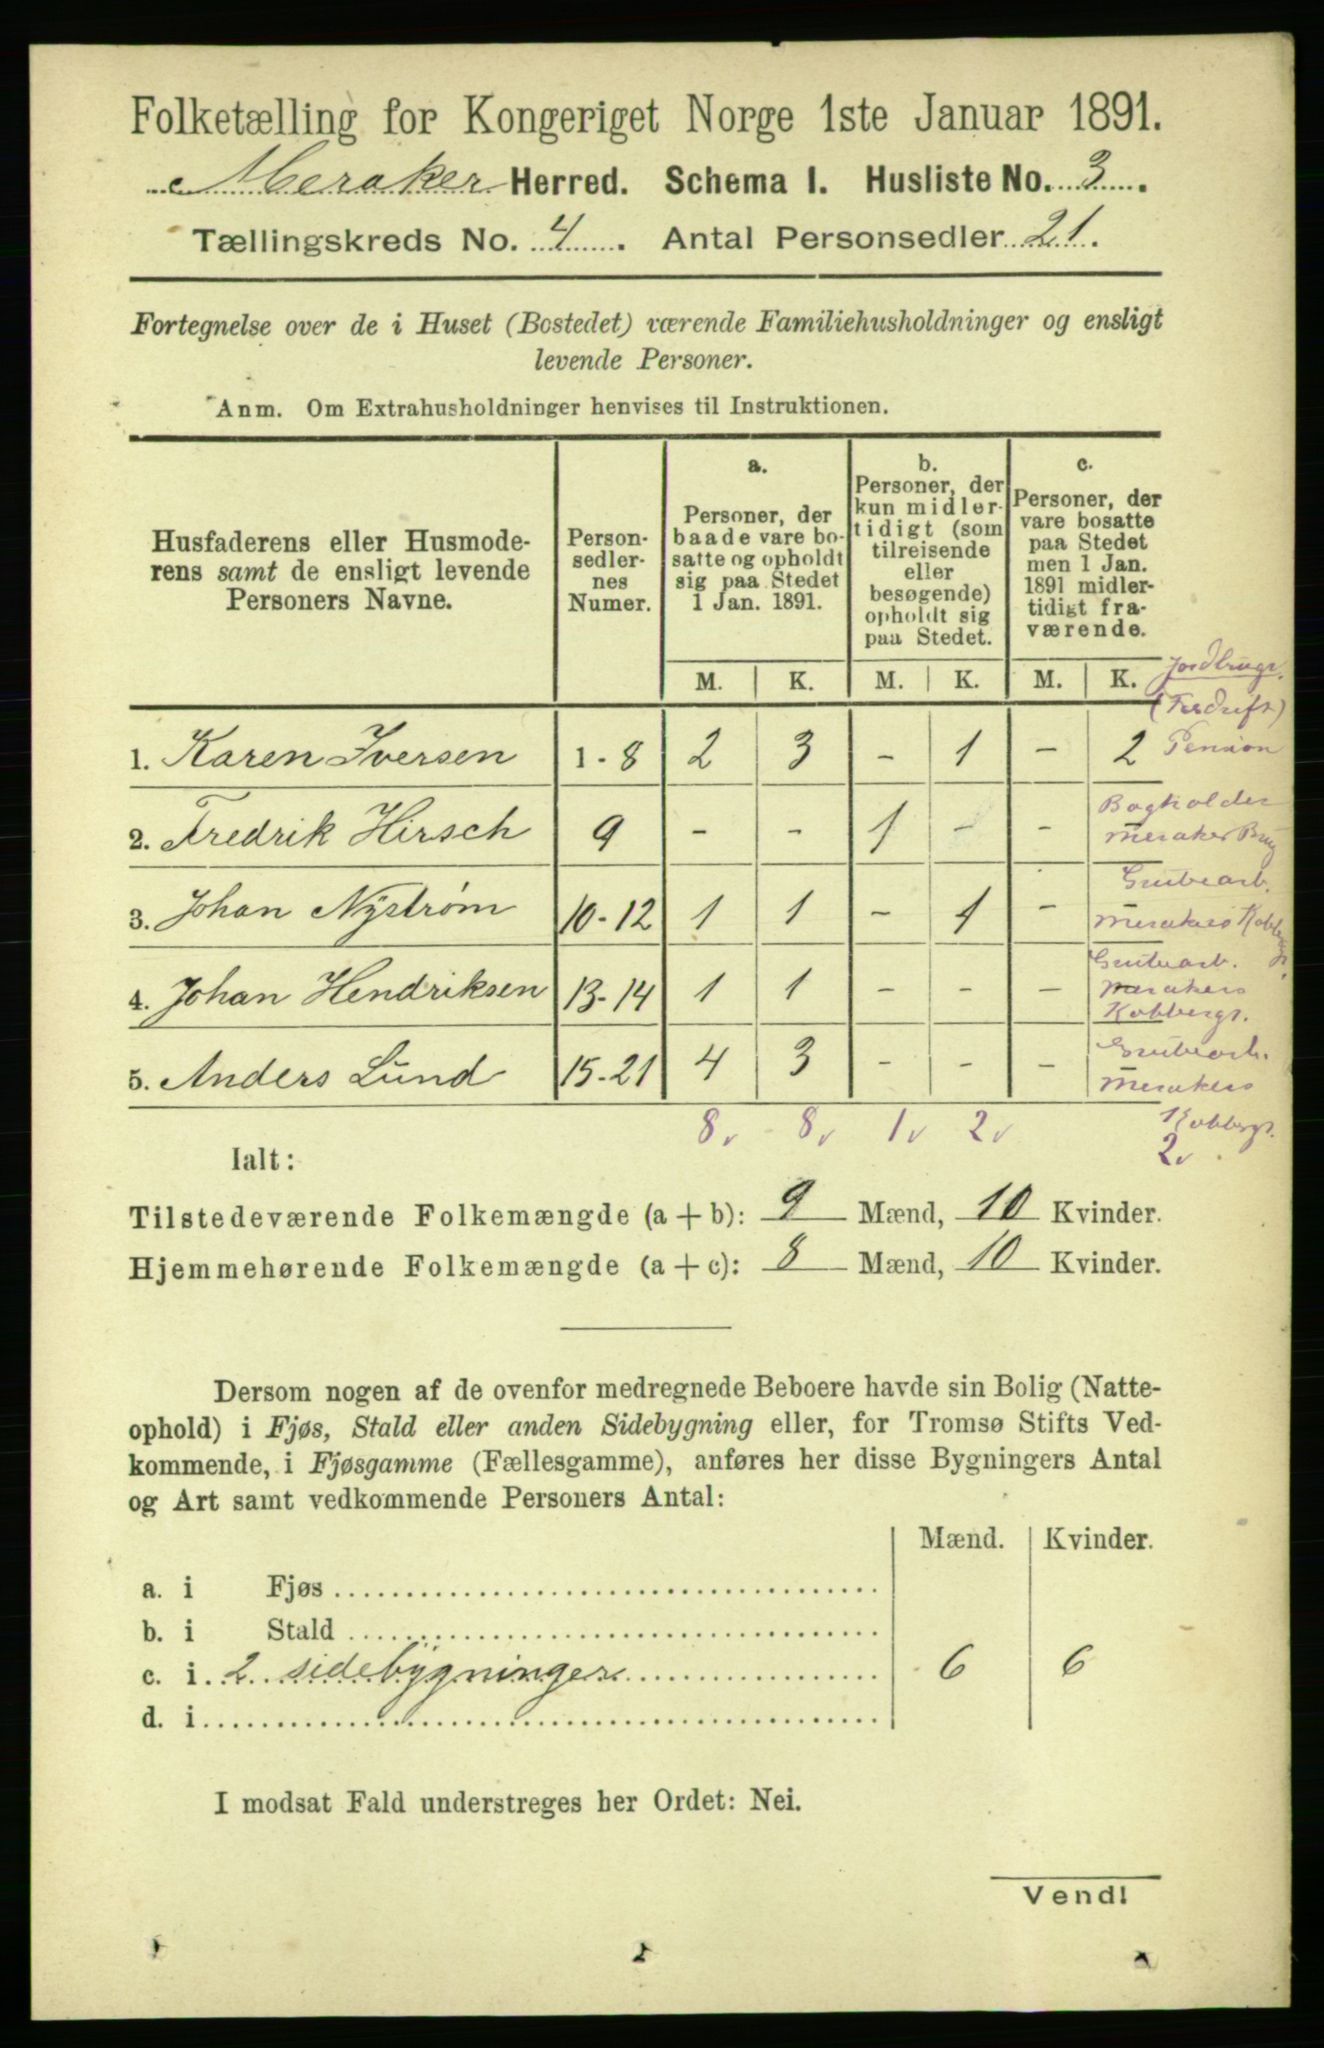 Folketælling for Kongeriget Norge 1ste Januar 1891.
Meraker Herred. Schema I. Husliste No. 3.
Tællingskreds No. 4. Antal Personsedler 21.
Fortegnelse over de i Huset (Bostedet) værende Familiehusholdninger og ensligt
levende Personer.
Anm. Om Extrahusholdninger henvises til Instruktionen.
Husfaderens eller Husmode-
rens samt de ensligt levende
Personers Navne.
Person-
sedler-
nes
Numer.
a.
Personer, der
baade vare bo-
satte og opholdt
sig paa Stedet
1 Jan. 1891.
b.
Personer, der
kun midler-
tidigt (som
tilreisende
eller
besøgende)
opholdt sig
paa Stedet.
c.
Personer, der
vare bosatte
paa Stedet
men 1 Jan.
1891 midler-
tidigt fra-
værende.
M. K. M. K. M. K.
Jordbrugs.
1. Karen Iversen 1-8 2 3 - 1 - 2 Pension
2. Fredrik Hirsch 9 - - 1 - - -
Bogholder
Meraker Brug
3. Johan Nystrøm 10-12 1 1 - 1 - -
Grubearb.
Merakers Kobbergr.
4. Johan Hendriksen 13-14 1 1 - - - -
Grubearb.
Merakers
Kobbergr.
5. Anders Lund 15-21 4 3 - - - -
Grubearb.
Merakers
Kobbergr.
8 8 1 2 2
Ialt:
Tilstedeværende Folkemængde (a + b): 9 Mænd, 10 Kvinder.
Hjemmehørende Folkemængde (a + c): 8 Mænd, 10 Kvinder.
Dersom nogen af de ovenfor medregnede Beboere havde sin Bolig (Natte-
ophold) i Fjøs, Stald eller anden Sidebygning eller, for Tromsø Stifts Ved-
kommende, i Fjøsgamme (Fællesgamme), anføres her disse Bygningers Antal
og Art samt vedkommende Personers Antal:
Mænd. Kvinder.
a. i Fjøs
b. i Stald
c. i 2 sidebygninger 6 6
d. i
I modsat Fald understreges her Ordet: Nei.
Vend!